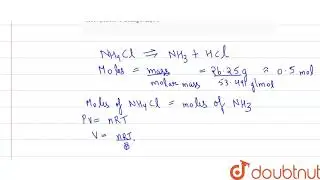 NH₄Cl ⇌ NH₃ + HCl
Moles = mass / molar mass = 26.25g / 53.491 g/mol ≈ 0.5 mol
Moles of NH₄Cl = moles of NH₃
PV = nRT
V = nRT / P
doubtnut